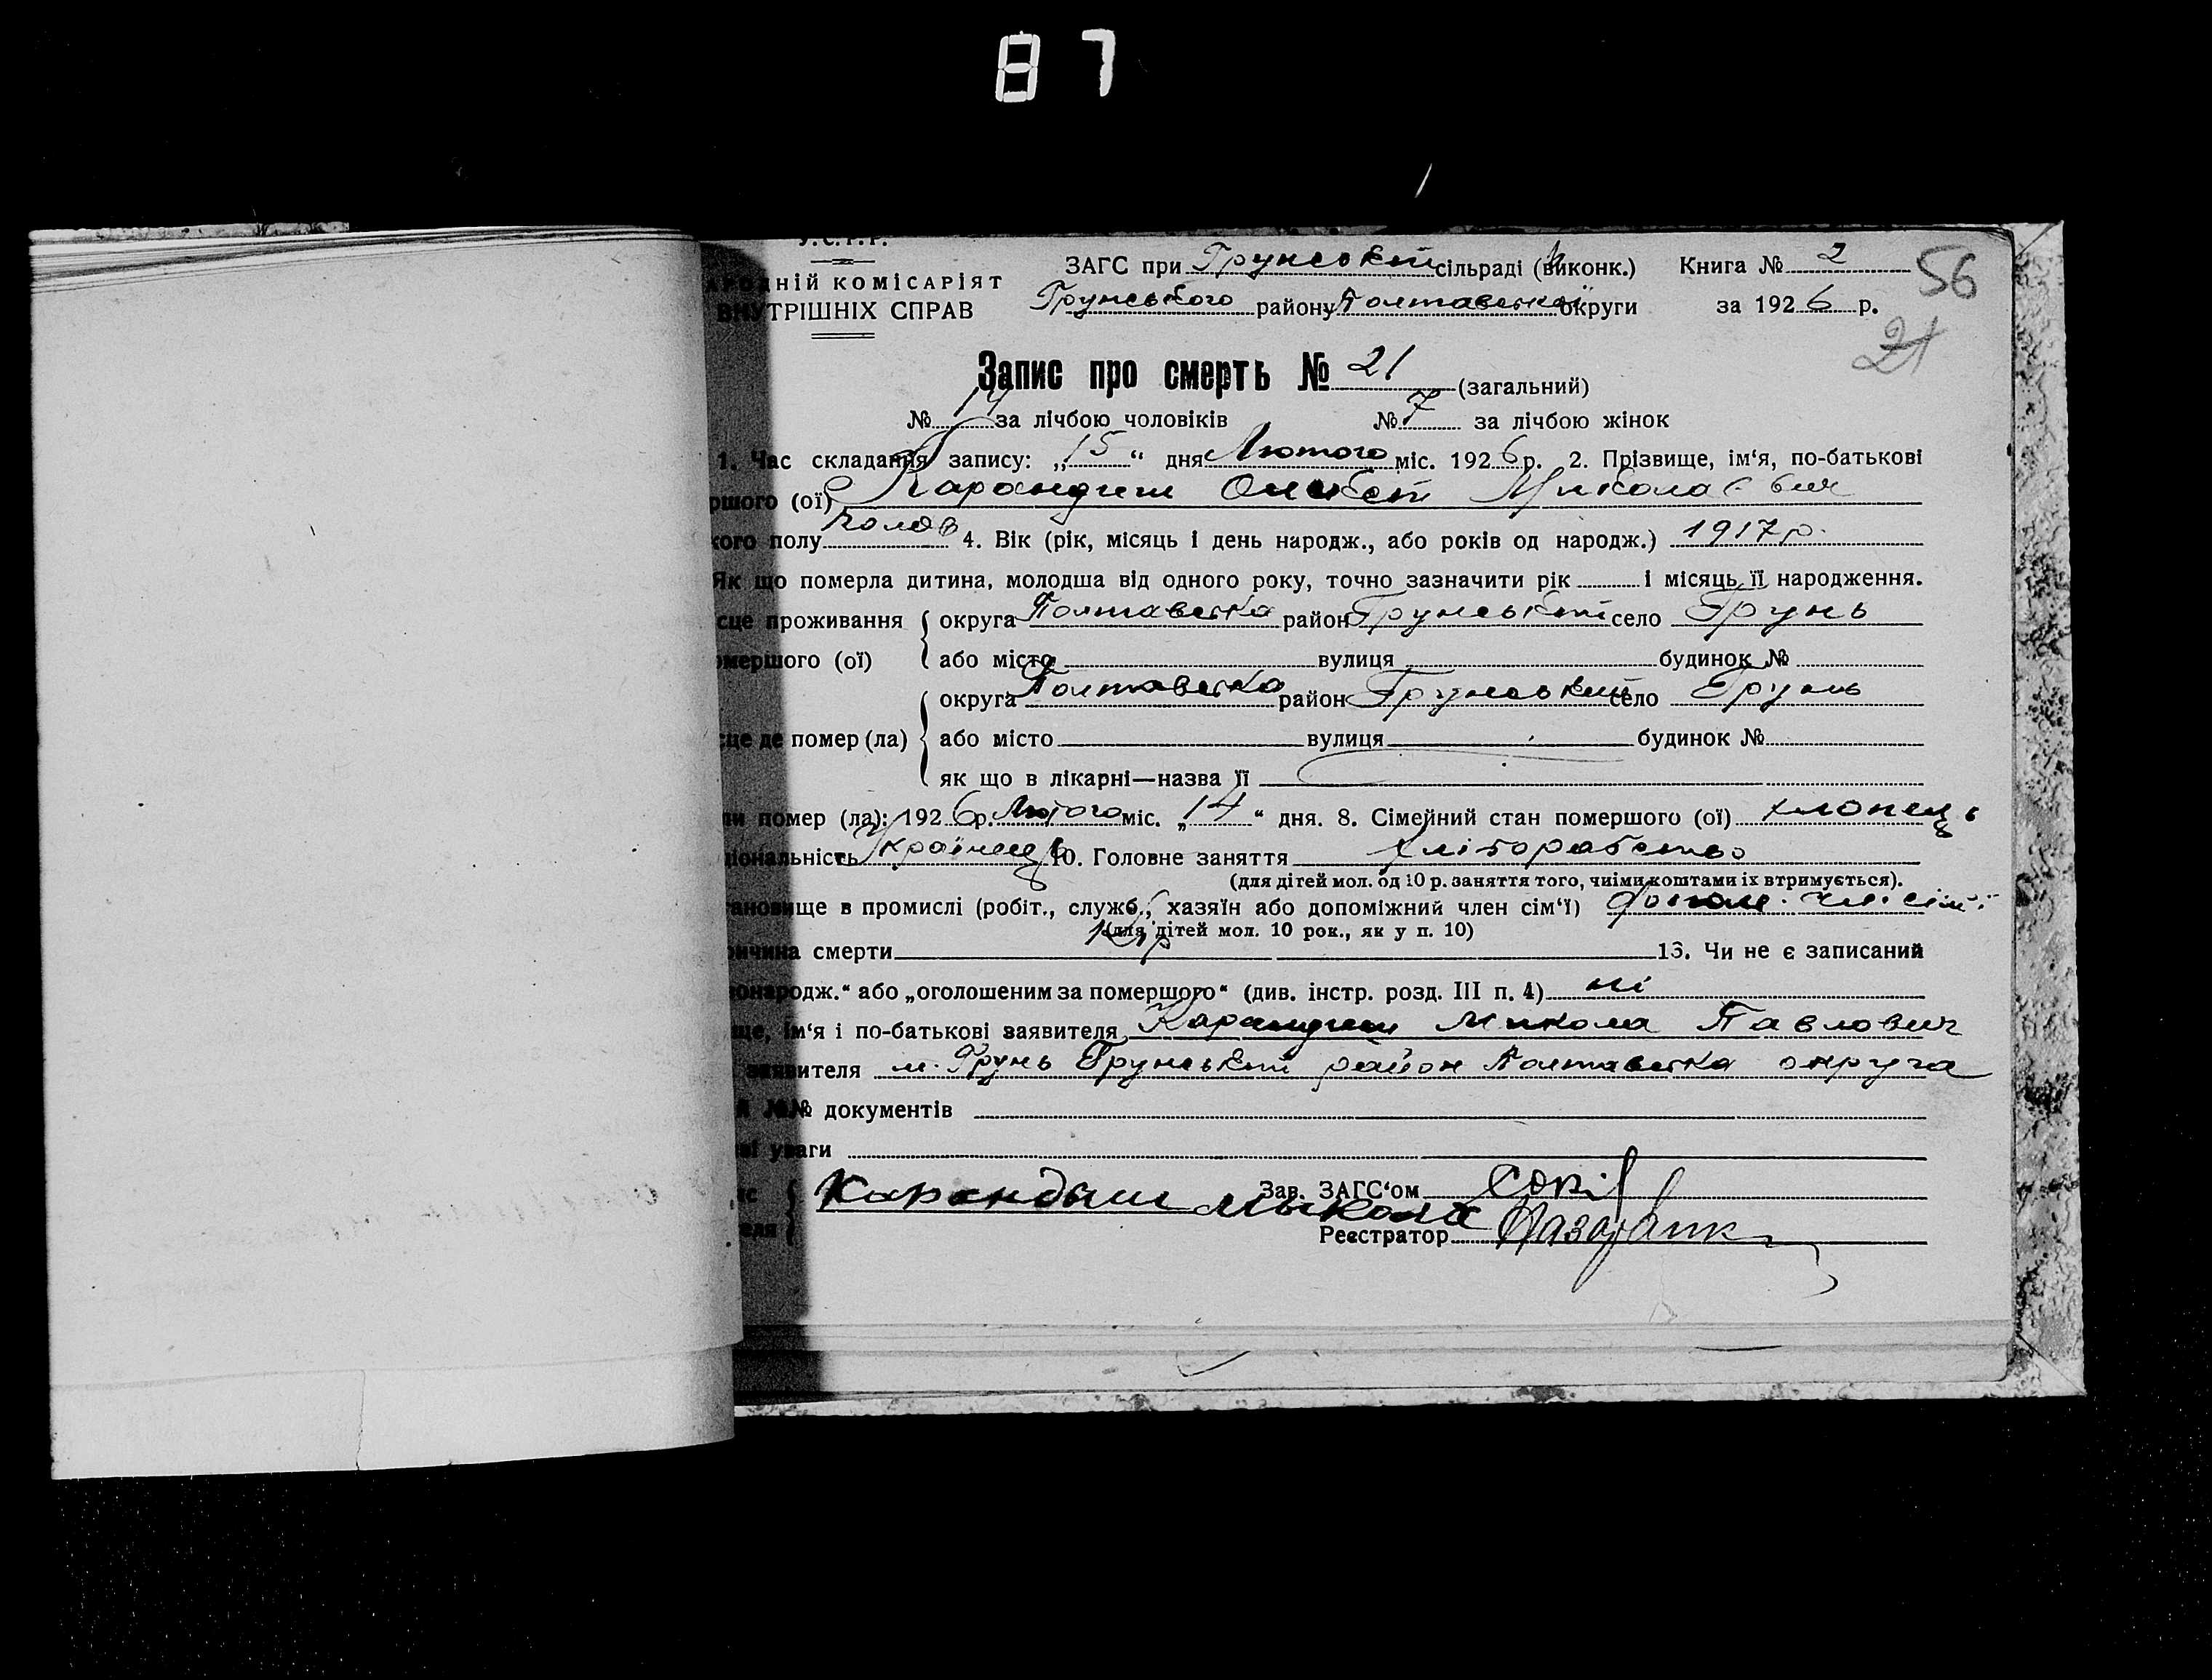 87
У.С.Р.Р.
НАРОДНІЙ КОМІСАРІЯТ
ВНУТРІШНІХ СПРАВ
ЗАГС при Грунській сільраді (виконк.) Книга № 2 56
Грунського району Полтавської округи за 1926 р.
21
Запис про смерть № 21 (загальний)
№ 14 за лічбою чоловіків № 7 за лічбою жінок
1. Час складання запису: „15“ дня Лютого міс. 1926 р. 2. Прізвище, ім‘я, по-батькові
ршого (ої) Карандиш Миколаєвич
кого полу чолов 4. Вік (рік, місяць і день народж., або років од народж.) 1917 р.
Як що померла дитина, молодша від одного року, точно зазначити рік і місяць її народження.
сце проживання округа Полтавська район Грунський село Грунь
омершого (ої) або місто вулиця будинок №
округа Полтавська район Грунський село Грунь
сце де помер (ла) або місто вулиця будинок №
як що в лікарні—назва її
ли помер (ла): 1926 р. Лютого міс. „14“ дня. 8. Сімейний стан помершого (ої) хлопець
ціональність Українець 10. Головне заняття хліборобство
(для дітей мол. од 10 р. заняття того, чиїми коштами їх втримується).
тановище в промислі (робіт., служб., хазяїн або допоміжний член сім‘ї) допом. чл. сім‘ї
(для дітей мол. 10 рок., як у п. 10)
ричина смерти Кір 13. Чи не є записаний
вонародж.“ або „оголошеним за помершого“ (див. інстр. розд. III п. 4) ні
ще, ім‘я і по-батькові заявителя Карандиш Микола Павлович
заявителя м. Грунь Грунський район Полтавська округа
й №№ документів
ві уваги
Карандыш Мыкола Зав. ЗАГС‘ом
Реєстратор